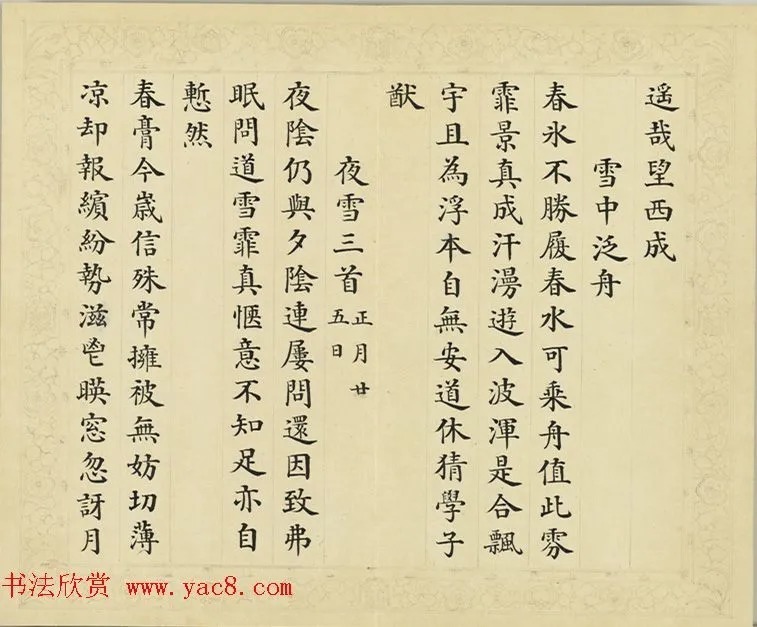 遥哉望西成
雪中泛舟
春氷不勝履春水可乗舟值此雰
霏景真成汗漫遊入波渾是合飄
宇且為浮本自無安道休猜學子
猷
夜雪三首 正月廿五日
夜陰仍與夕陰連屢問還因致弗
眠問道雪霏真愜意不知足亦自
慙然
春膏今歳信殊常擁被無妨切薄
凉却報繽紛勢滋鬯暎窓忽訝月
书法欣赏 www.yac8.com